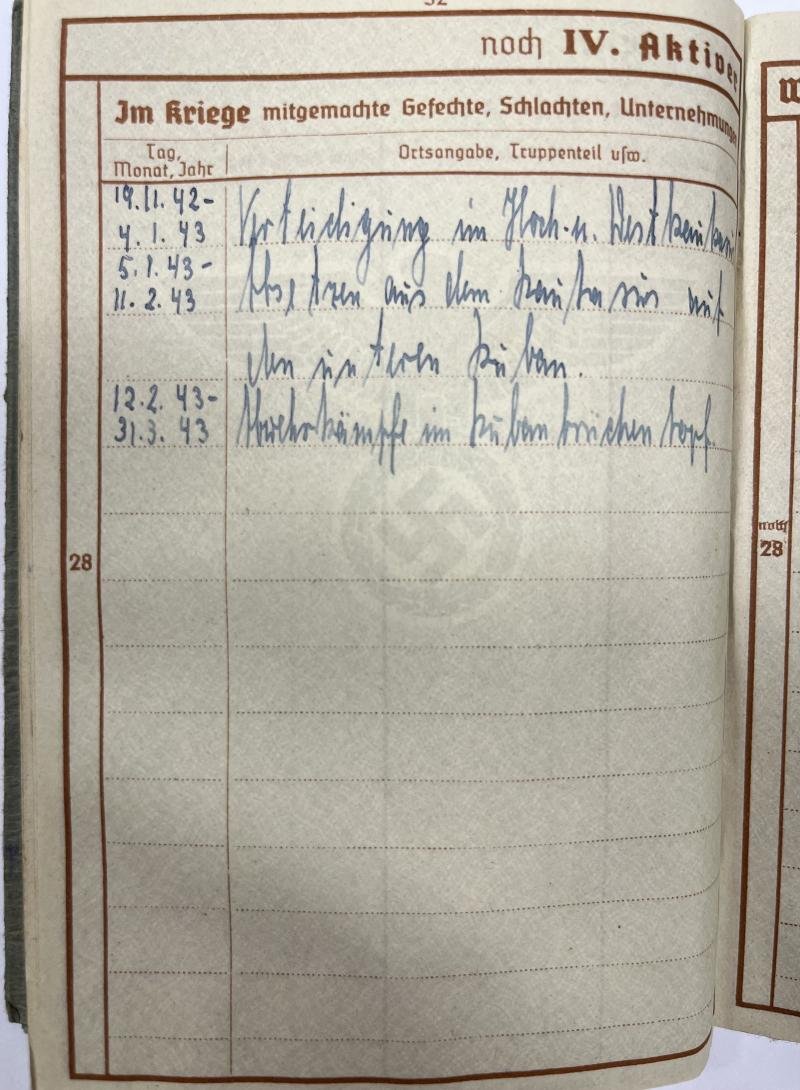 32
noch IV. Aktiver
Im Kriege mitgemachte Gefechte, Schlachten, Unternehmungen
Tag, Monat, Jahr
Ortsangabe, Truppenteil usw.
19.11.42-
4.1.43
Verteidigung im Hoch-u. Westkaukasus
5.1.43-
11.2.43
Absetzen aus dem Kaukasus auf
den unteren Kuban.
12.2.43-
31.3.43
Abwehrkämpfe im Kubanbrückenkopf.
28
noch
28